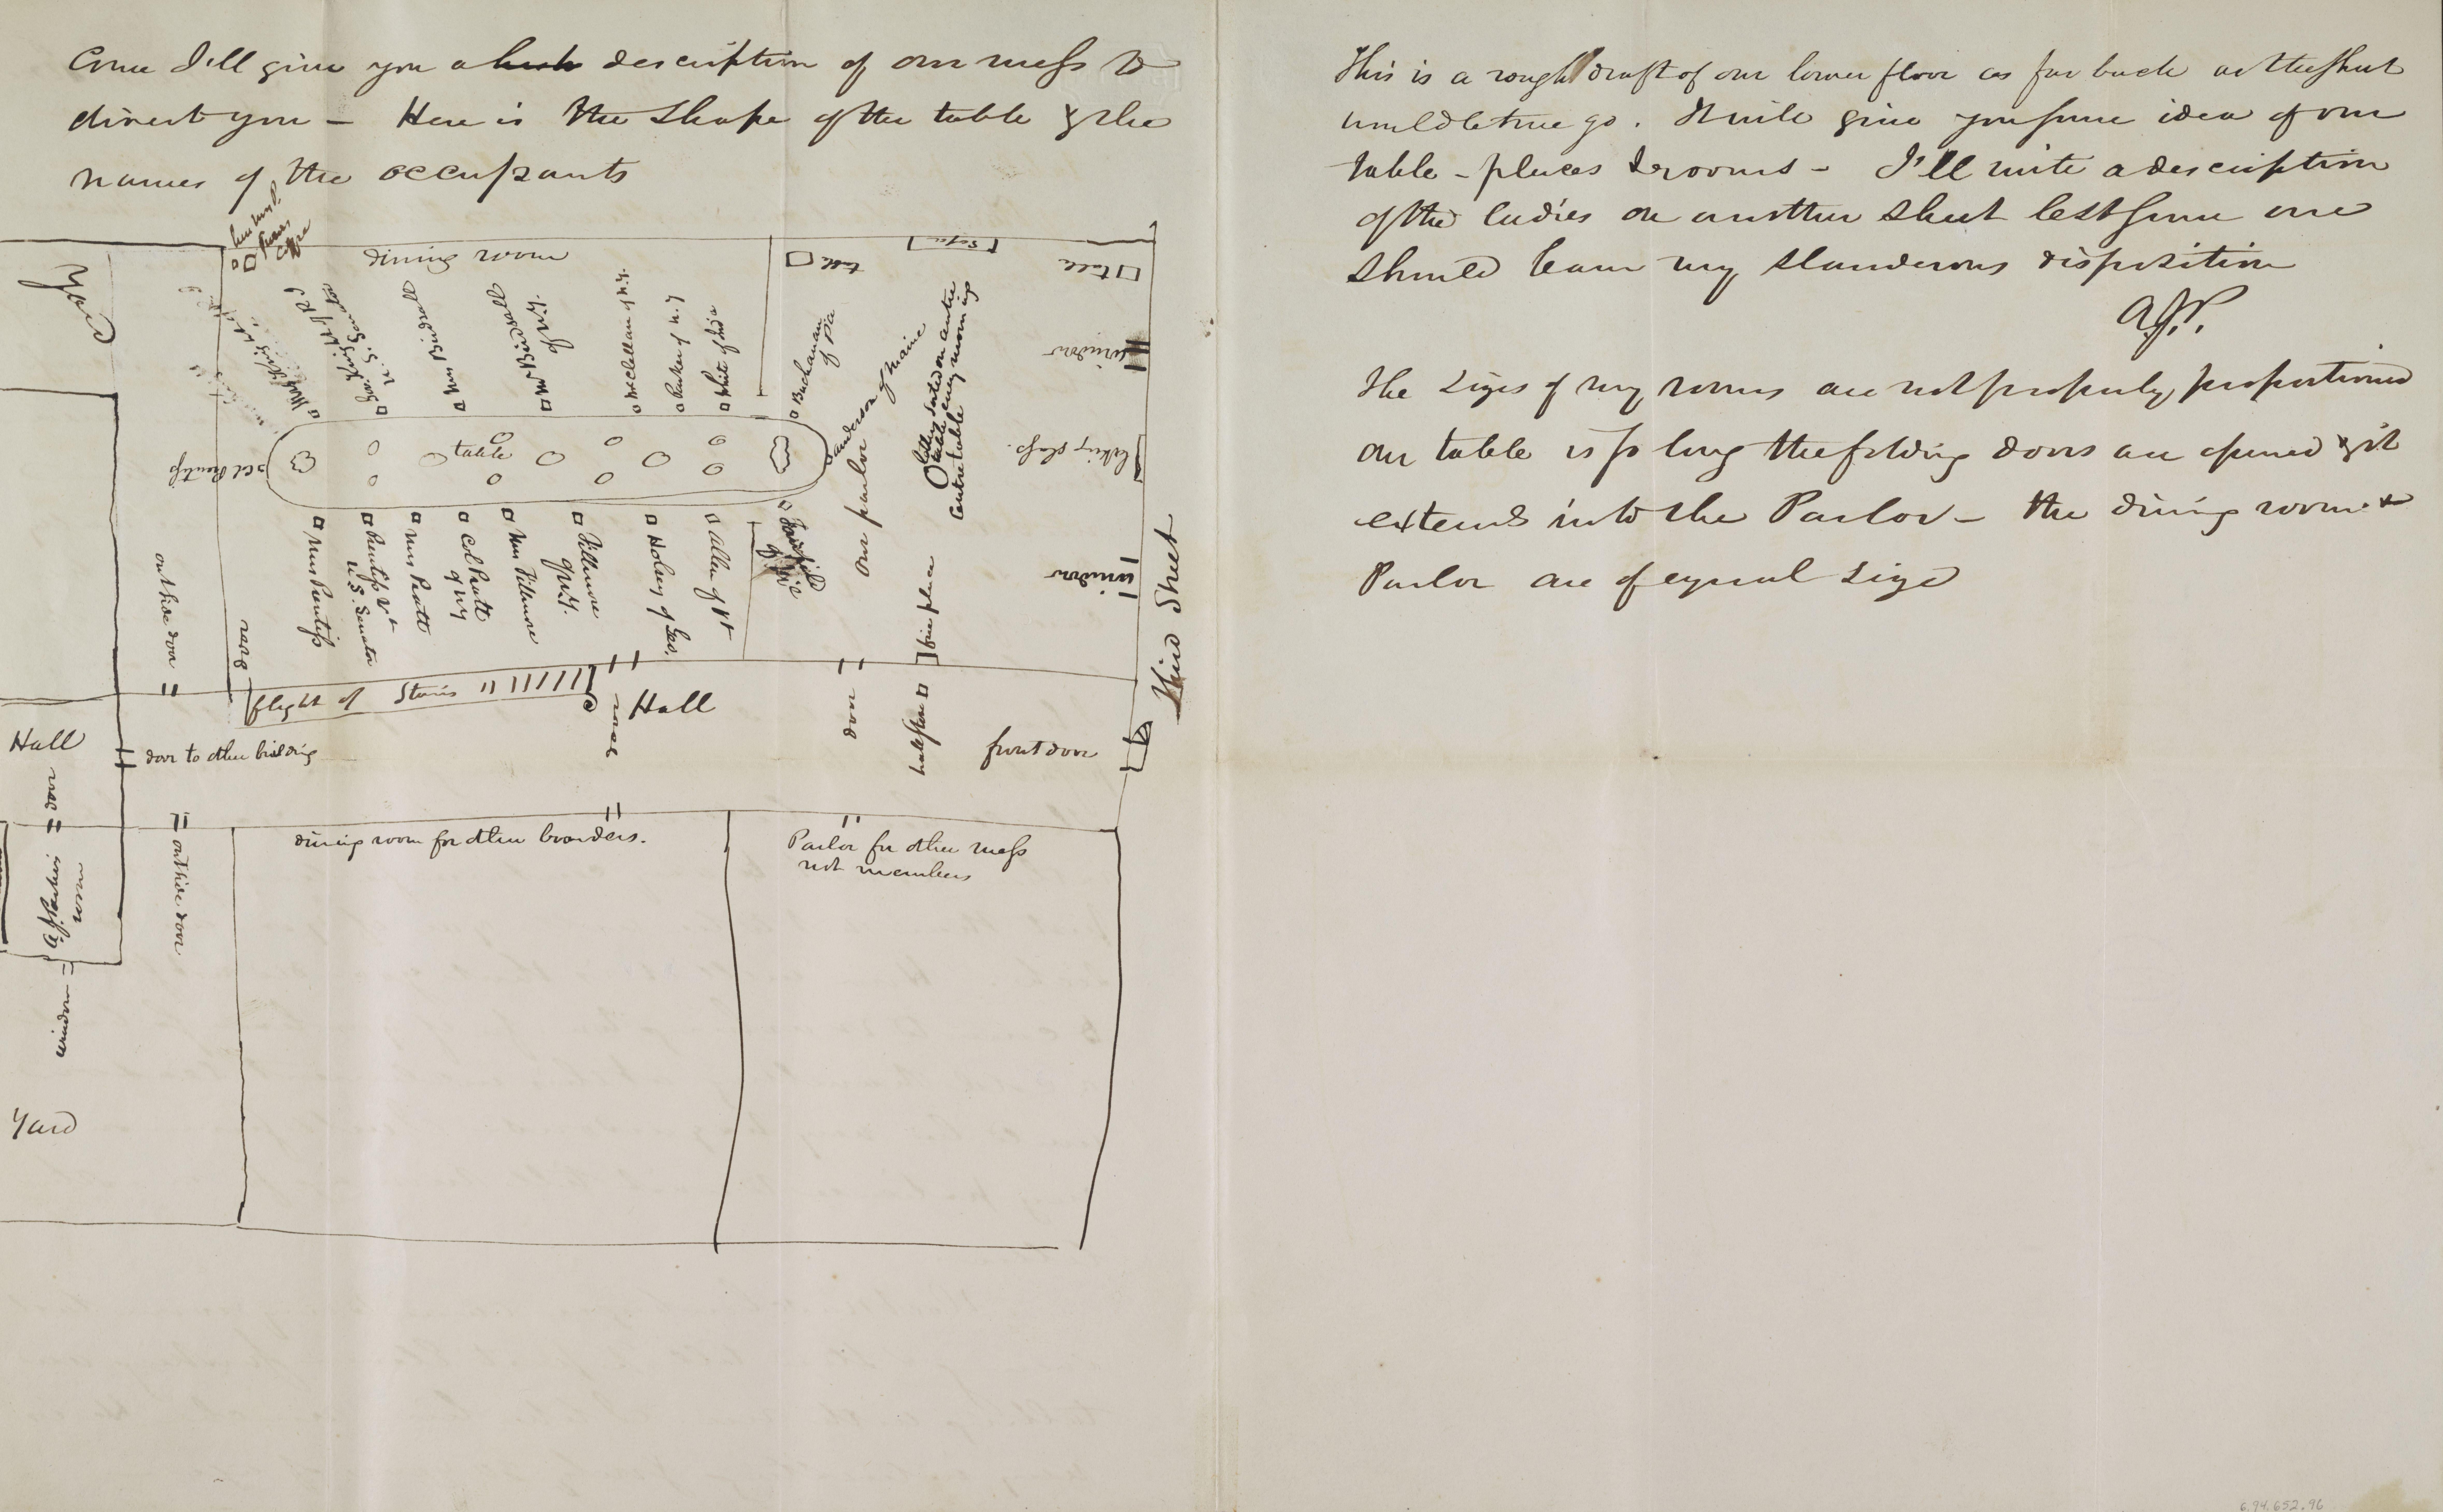 Come I'll give you a description of our mess to
direct you - Here is the shape of the table & the
names of the occupants
dining room
table
Sofa
table
window
looking glass
window
Third Street
Mrs Birdsall
Mr Birdsall
of N.Y.
McClellan of N.Y.
Parker of N.J
White of India
Buchanan
of Pa
anderson of Maine
our parlor
centre table
table
Col Prentiss
Mrs Prentiss
Prentiss Vt
U.S. Senator
Mrs Pratt
Col Pratt
of NY
Mrs Fillmore
Fillmore
of N.Y.
Holsey of Geo.
Allen of Vt
fire place
outside door
door
flight of Stairs
door
Hall
door
front door
Hall
door to other building
door
outside door
dining room for other boarders.
Parlor for other mess
not members
A.J. Parkers
room
window
Yard
This is a rough draft of our lower floor as far back as the sheet
would let me go. It will give you some idea of our
table - places & rooms - I'll write a description
of the ladies on another sheet lest some one
should learn my slanderous disposition
A.J.P.
The sizes of my rooms are not properly proportioned
our table is so long the folding doors are opened & it
extends into the Parlor - the dining room &
Parlor are of equal size
6.94.652.96